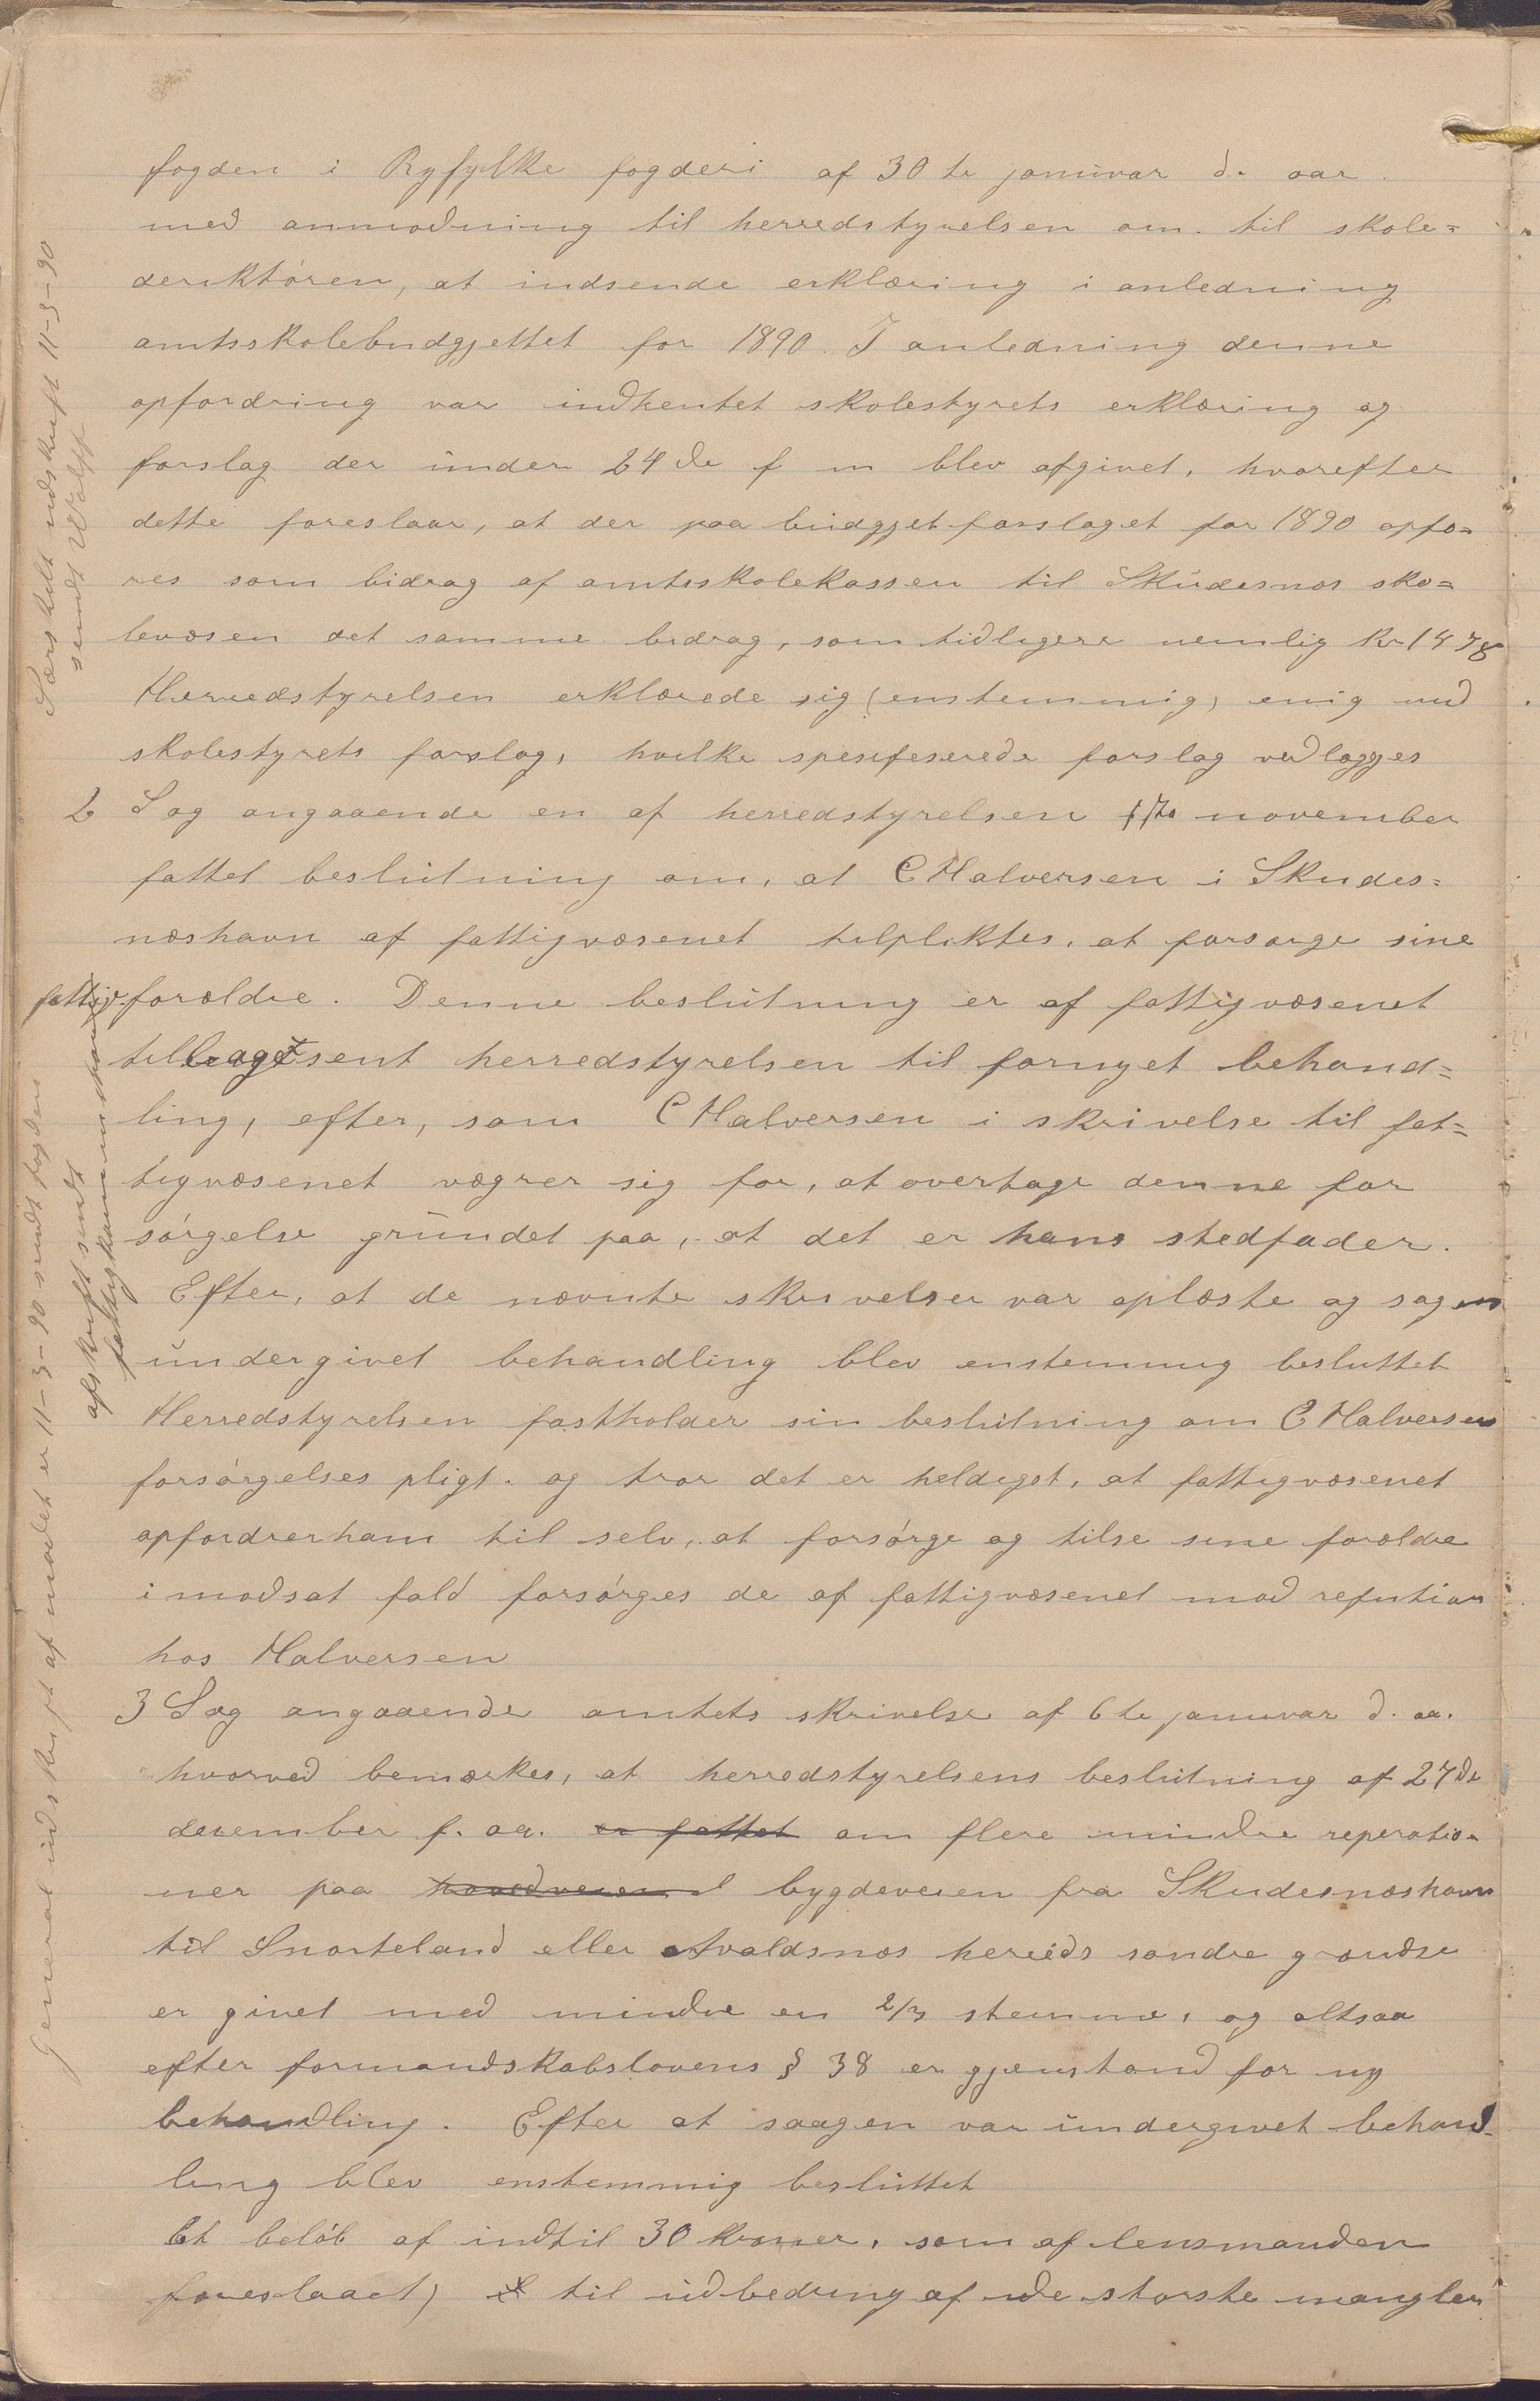 fogden i Ryfylke fogderi af 30te januvar d. aar.
med anmodning til herredstyrelsen om. til skole=
deriktören, at indsende erklæring i anledning
amtsskolebudgjettet for 1890. I anledning denne
opfordring var indhentet skolestyrets erklæring og
forslag der under 24de f m blev afgivet, hvorefter
dette foreslaar, at der paa budgjetforslaget for 1890 opfø=
res som bidrag af amtsskolekassen til Skudesnæs sko=
levæsen det samme bidrag, som tidligere nemlig Kr 1478
Herredstyrelsen erklærede sig (enstemmig) enig med
skolestyrets forslag, hvilke spesifeserede forslag vedlægges
2 Sag angaaende en af herredstyrelsen 17de november
fattet beslutning om, at C Halversen i Skudes=
næshavn af fattigvæsenet tilpliktes, at forsørge sine
fattige forældre. Denne beslutning er af fattigvæsenet
tilbagesent herredstyrelsen til fornyet behand=
ling, efter, som C Halversen i skrivelse til fat=
tigvæsenet vægrer sig for, at overtage denne for
sörgelse grundet paa, at det er hans stedfader.
Efter, at de nævnte skrivelser var oplæste og sagen
undergivet behandling blev enstemmig besluttet
Herredstyrelsen fastholder sin beslutning om C Halversen
forsörgelses pligt. og tror det er heldigst, at fattigvæsenet
opfordrer ham til selv, at forsörge og tilse sine forældre
i modsat fald forsörges de af fattigvæsenet mod refution
hos Halversen
3 Sag angaaende amtets skrivelse af 6te januvar d. aa.
hvorved bemærkes, at herredstyrelsens beslutning af 27de
december f. aa. er fattet om flere mindre reperatio=
ner paa hovedveien bygdeveien fra Skudesnæshavn
til Snorteland eller Avaldsnæs herreds søndre grændse
er givet med mindre en 2/3 stemme, og altsaa
efter formandskabslovens § 38 er gjenstand for ny
behandling. Efter at saagen var undergivet behand=
ling blev enstemmig besluttet
Et belöb af indtil 30 kroner, som af lensmanden
foreslaaet) til udbedring af de største mangler
Særskilt udskrift 11-3-90
sendt
afskrift sendt
fattigkommissionen
General udskrift af mødet er 11-3-90 sendt fogden